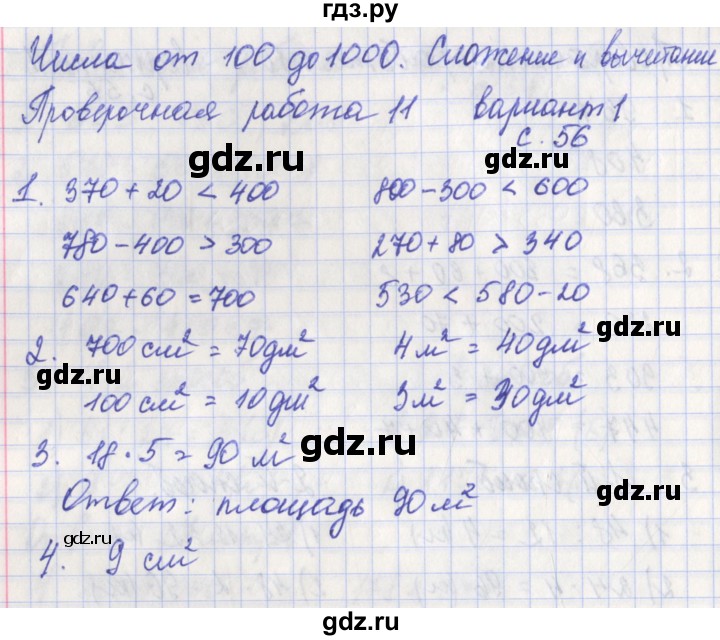 гдз.ру
Числа от 100 до 1000. Сложение и вычитание
Проверочная работа 11 вариант 1
с. 56
gdz.ru gdz.ru
1. 370 + 20 < 400 800 - 300 < 600
780 - 400 > 300 270 + 80 > 340
gdz.ru gdz.ru
640 + 60 = 700 530 < 580 - 20
gdz.ru
2. 700 см² = 70 дм² 4 м² = 40 дм²
gdz.ru
100 см² = 10 дм² 3 м² = 30 дм²
gdz.ru
3. 18 · 5 = 90 м²
Ответ: площадь 90 м²
gdz.ru
gdz.ru
4. 9 см²
gdz.ru gdz.ru
gdz.ru